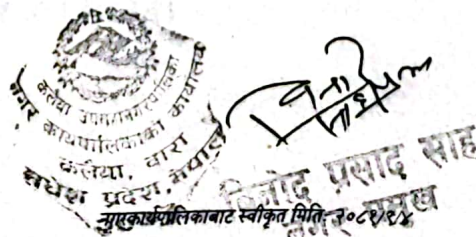 कलैया उपमहानगरपालिका
नगर कार्यपालिकाको कार्यालय
कलैया, बारा
मधेश प्रदेश, नेपाल
विनोद प्रसाद साह
नगर प्रमुख
नगरकार्यपालिकाबाट स्वीकृत मिति:-२०८१/९/४